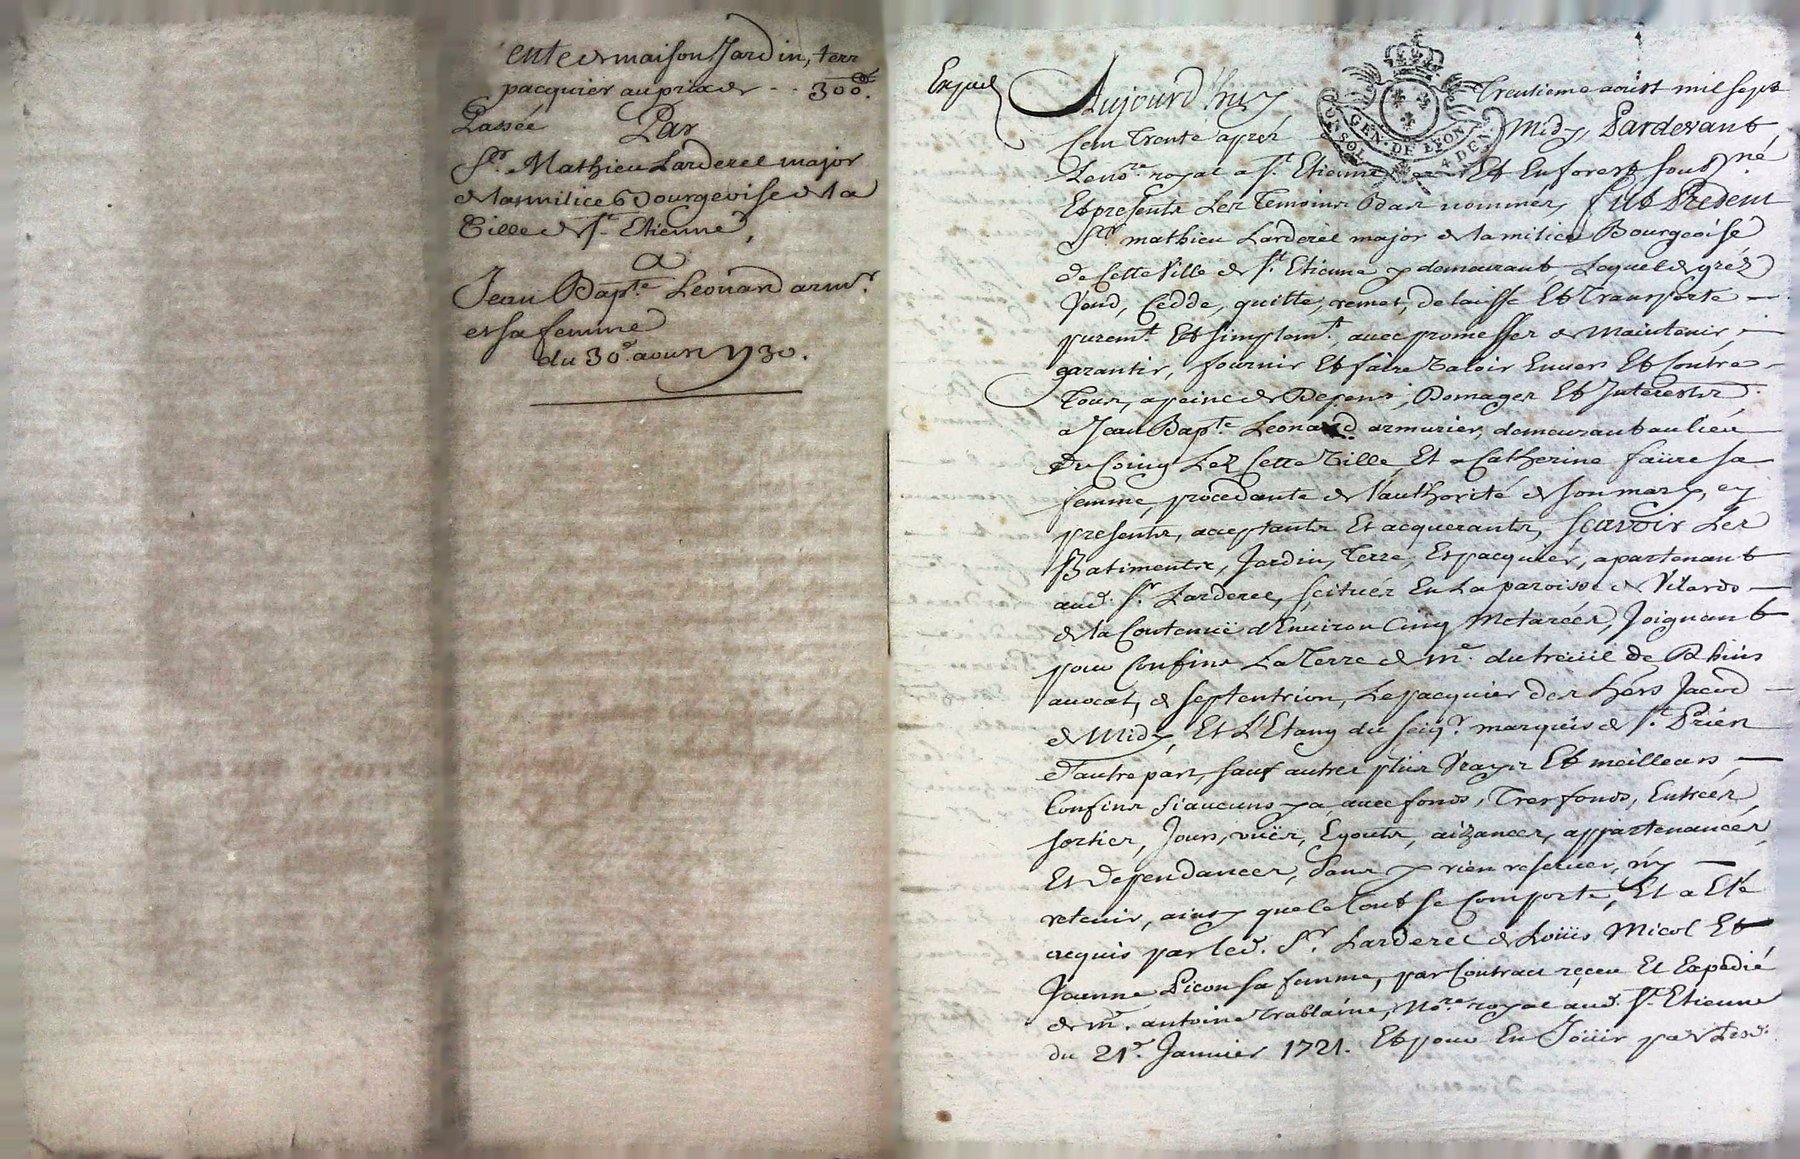 ente de maison Jardin, terr
pacquier au prix de - - 300#.
Passée Par
Sr. Mathieu Larderel major
de la milice Bourgeoise de la
Ville de St. Etienne,
a
Jean Bapte. Leonard armr.
et sa femme
du 30e. aoust 1730.
Expié
Aujourd'huy Trentieme aoust mil sept
Cent Trente apres Midy, Pardevant
Le nore. royal a St. Etienne Et En forest sousné
Et presents Les Temoins Bas nommés, fut Present
Sr. mathieu Larderel major de la milice Bourgeoise
de Cette Ville de St. Etienne y demeurant Lequel de gré
Vend, Cedde, quitte, remet, delaisse Et Transporte —
puremt. Et simplemt., avec promesses de Maintenir,
garantir, fournir Et faire Valoir Envers Et Contre
Tous, a peine de Depens, Domages Et Interests
a Jean Bapte. Leonard armurier, demeurant au lieu
du Coing Lez Cette Ville, Et a Catherine faüre sa
femme, procedante de l'authorité de son mary, cy
presents, acceptants Et acquerants, scavoir Les
Batiments, Jardin, Terre, Et pacquier, apartenant
aud. Sr. Larderel, scitués En La paroisse de Vilards —
de la Contenuë d'Environ Cinq Metarées, Joignant
pour Confins La Terre de me. dutreüil de Rhins
avocat, de septentrion, Le pacquier des hers Jacod —
de Midy, Et L'Etang du seigr. marquis de St. Priën
d'autre part, sauf autres plus Vrays Et meilleurs —
Confins si aucuns y a, avec fonds, Tresfonds, Entrées
sorties, Jours, vuës, Egouts, aizances, appartenances,
Et Dependances, sans y rien reserver, ny —
retenir, ainsy que le tout se Comporte, Et a Eté
acquis par led. Sr. Larderel de Loüis Micol Et
Jeanne Picon sa femme, par Contract reçeu Et Expedié
de me. antoine Trablaine, Nore. royal aud. St. Etienne
du 21e. Janvier 1721. Et pour En Joüir par Lesd.
GEN. DE LYON